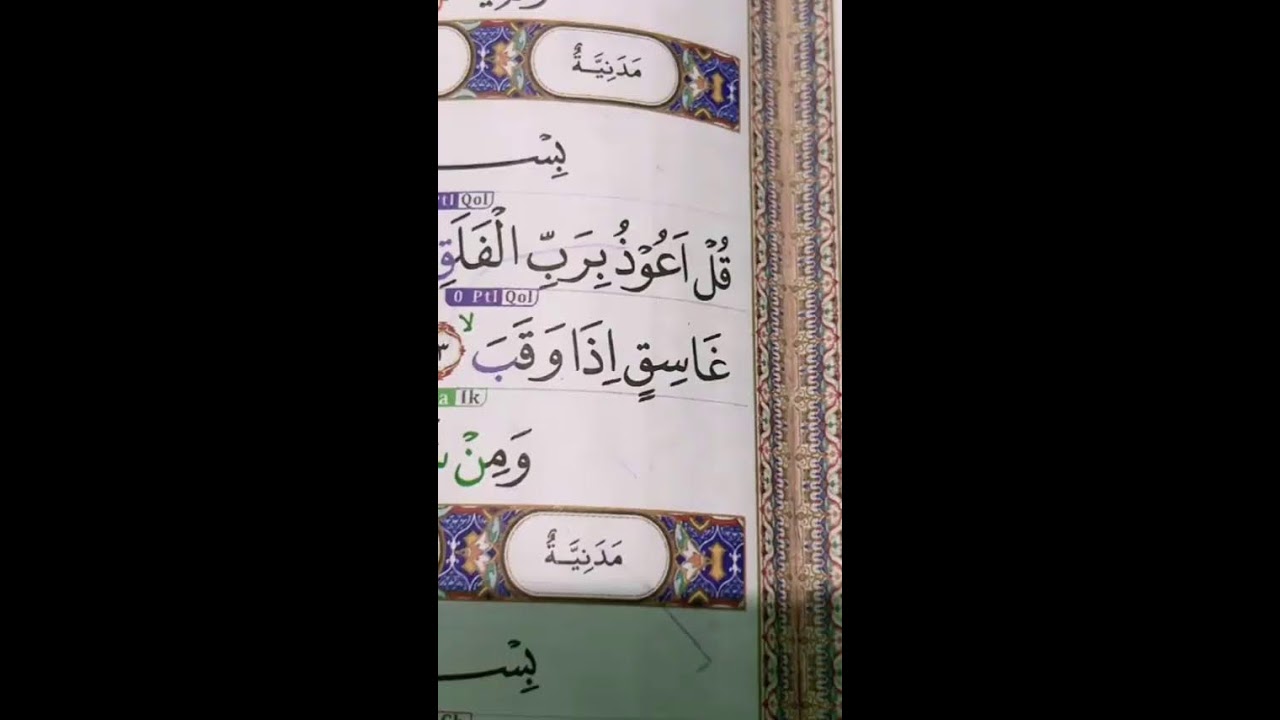 مَدَنِيَّةٌ
بِسْـــ
Qol
قُلْ اَعُوْذُ بِرَبِّ الْفَلَقِ
0 Ptl Qol
غَاسِقٍ اِذَا وَقَبَ ۙ ٣
Ik
وَمِنْ
مَدَنِيَّةٌ
بِسْـــ